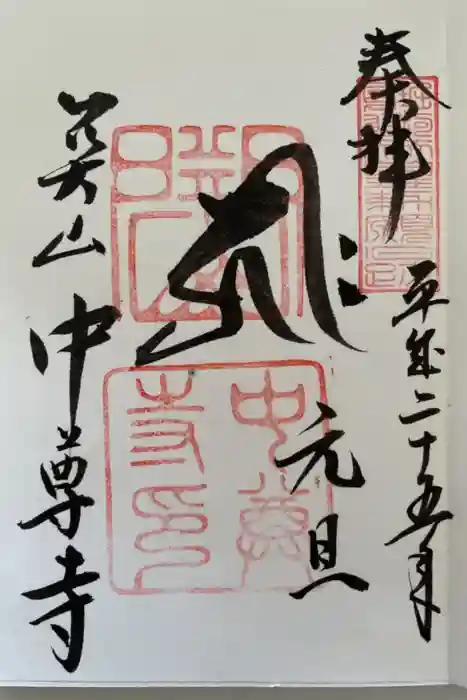 奉拝
平成二十五年
元旦
関山
中尊寺
關山
中尊寺印